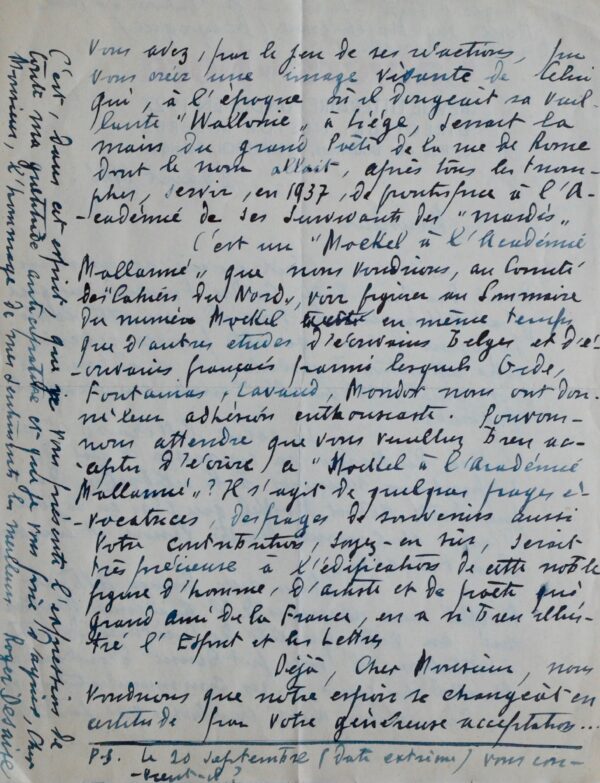 vous avez, par le jeu de ses réactions, pu
vous créer une image vivante de Celui
qui, à l'époque où il dirigeait sa vail-
lante "Wallonie" à Liége, serrait la
main du grand Poète de la rue de Rome
dont le nom allait, après tous les triom-
phes, servir, en 1937, de frontispice à l'A-
cadémie de ses survivants des "mardis"
C'est un "Mockel à l'Académie
Mallarmé" que nous voudrions, au Comité
des "Cahiers du Nord", voir figurer au Sommaire
du numéro Mockel en même temps
que d'autres études d'écrivains belges et d'é-
crivains français parmi lesquels Gide,
Fontainas, Lavaud, Mondor nous ont don-
né leur adhésion enthousiaste. Pouvons-
nous attendre que vous veuillez bien ac-
cepter d'écrire ce "Mockel à l'Académie
Mallarmé"? Il s'agit de quelques pages é-
vocatrices, des pages de souvenirs aussi
Votre contribution, soyez-en sûr, serait
très précieuse à l'édification de cette noble
figure d'homme, d'artiste et de poète qui
grand ami de la France, en a si bien illus-
tré l'Esprit et les Lettres
Déjà, Cher Monsieur, nous
voudrions que notre espoir se changeât en
certitude par votre généreuse acceptation...
P.S. Le 20 septembre (date extrême) vous con-
vient-il?
C'est, dans cet esprit que je vous présente l'expression de
toute ma gratitude anticipative et que je vous prie d'agréer, Cher
Monsieur, l'hommage de mes sentiments les meilleurs Roger Desaise